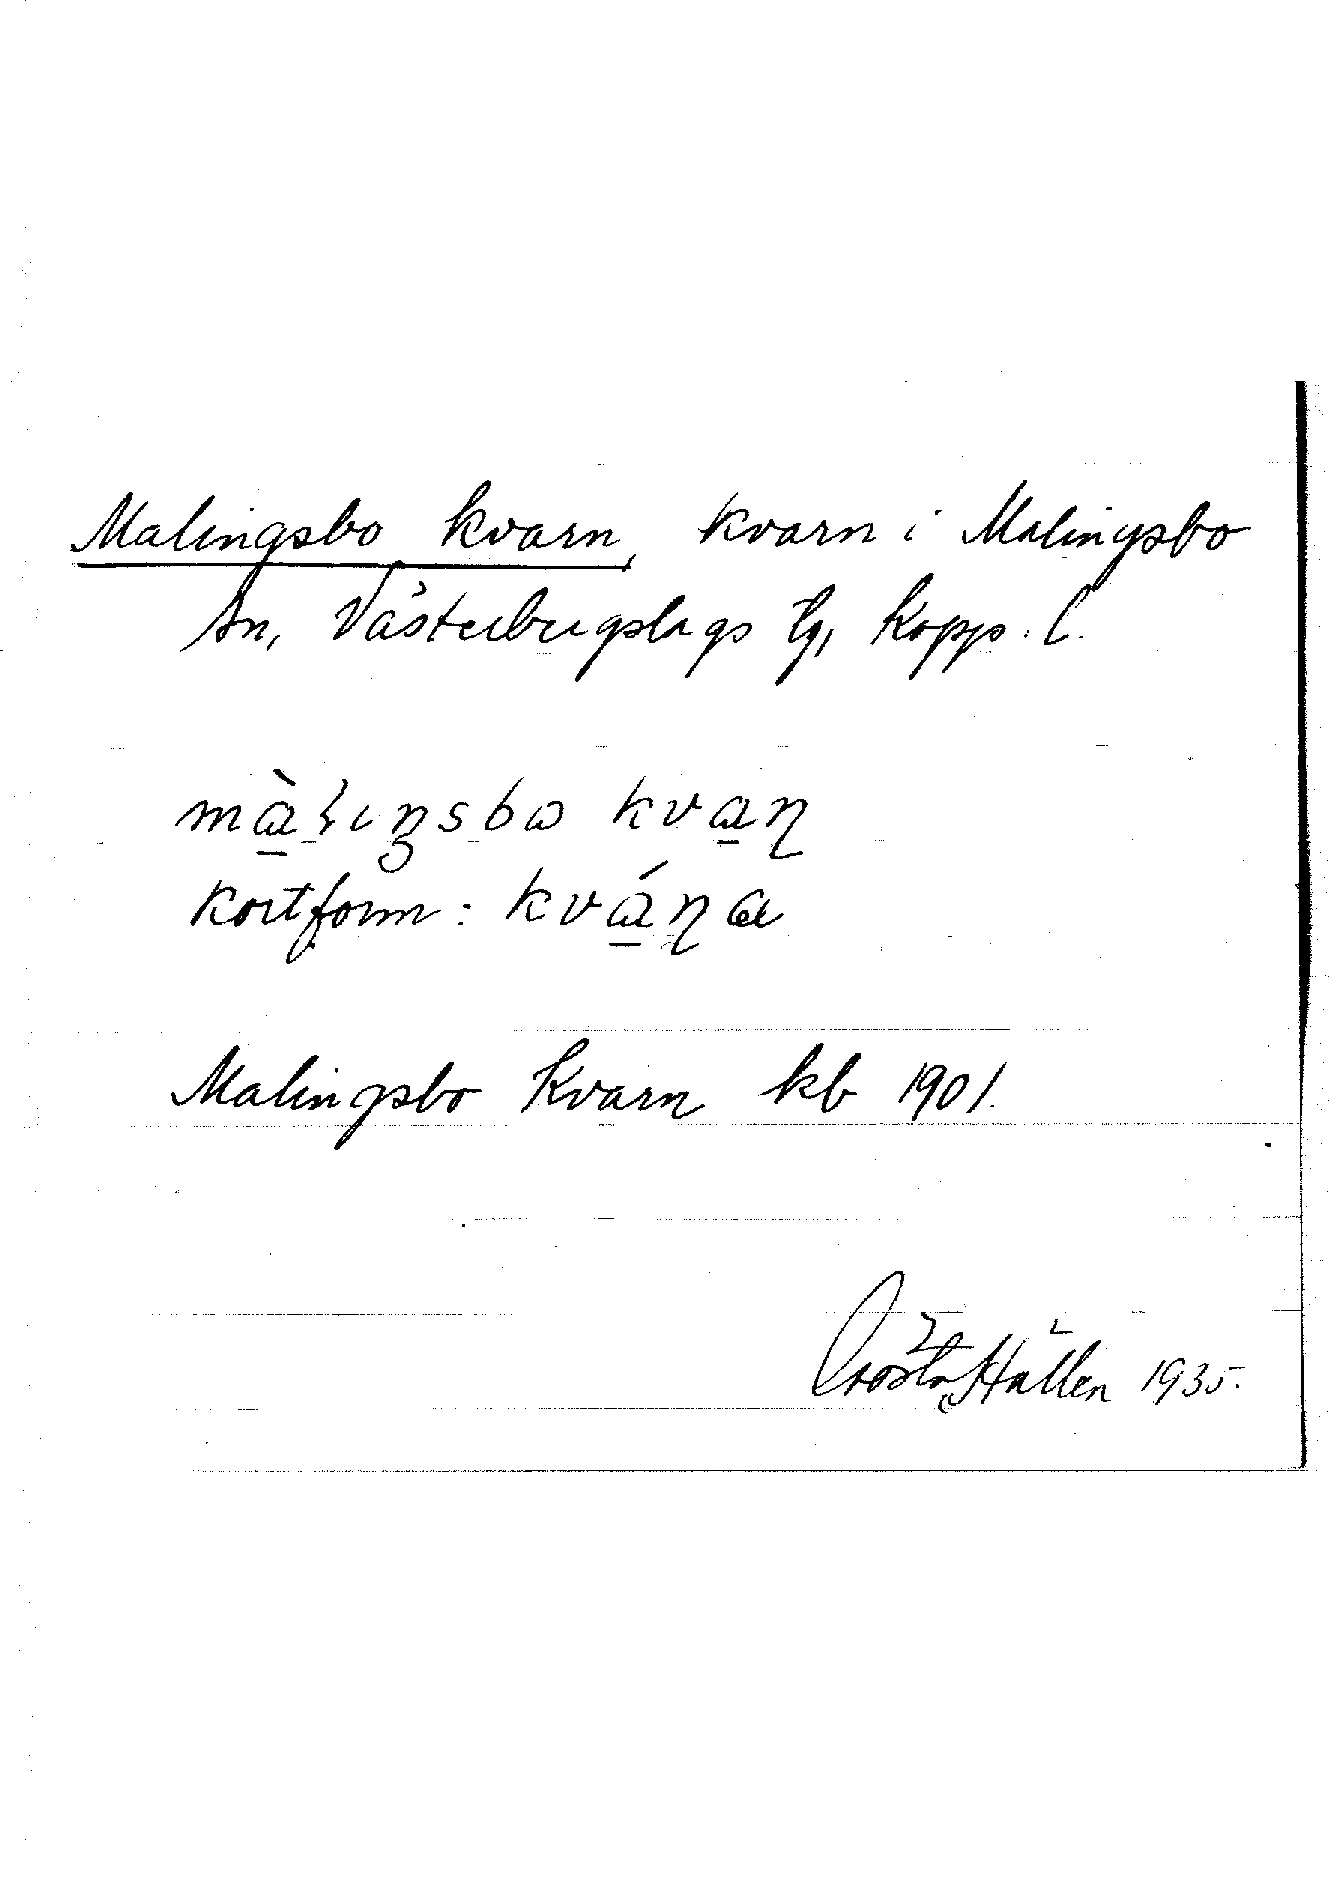 Malingsbo kvarn, kvarn i Malingsbo
sn, Västerbergslags tg, Kopp. l.
mà̱lɩŋsbω kva̱ɳ
kortform: kvá̱ɳa
Malingsbo Kvarn kb 1901.
Gösta Hallén 1935.